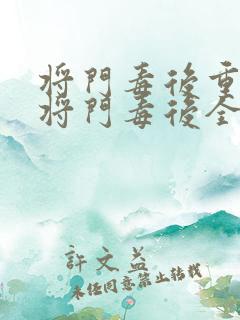 将門毒後重
将門毒後全
許文益
未經同意禁止轉載